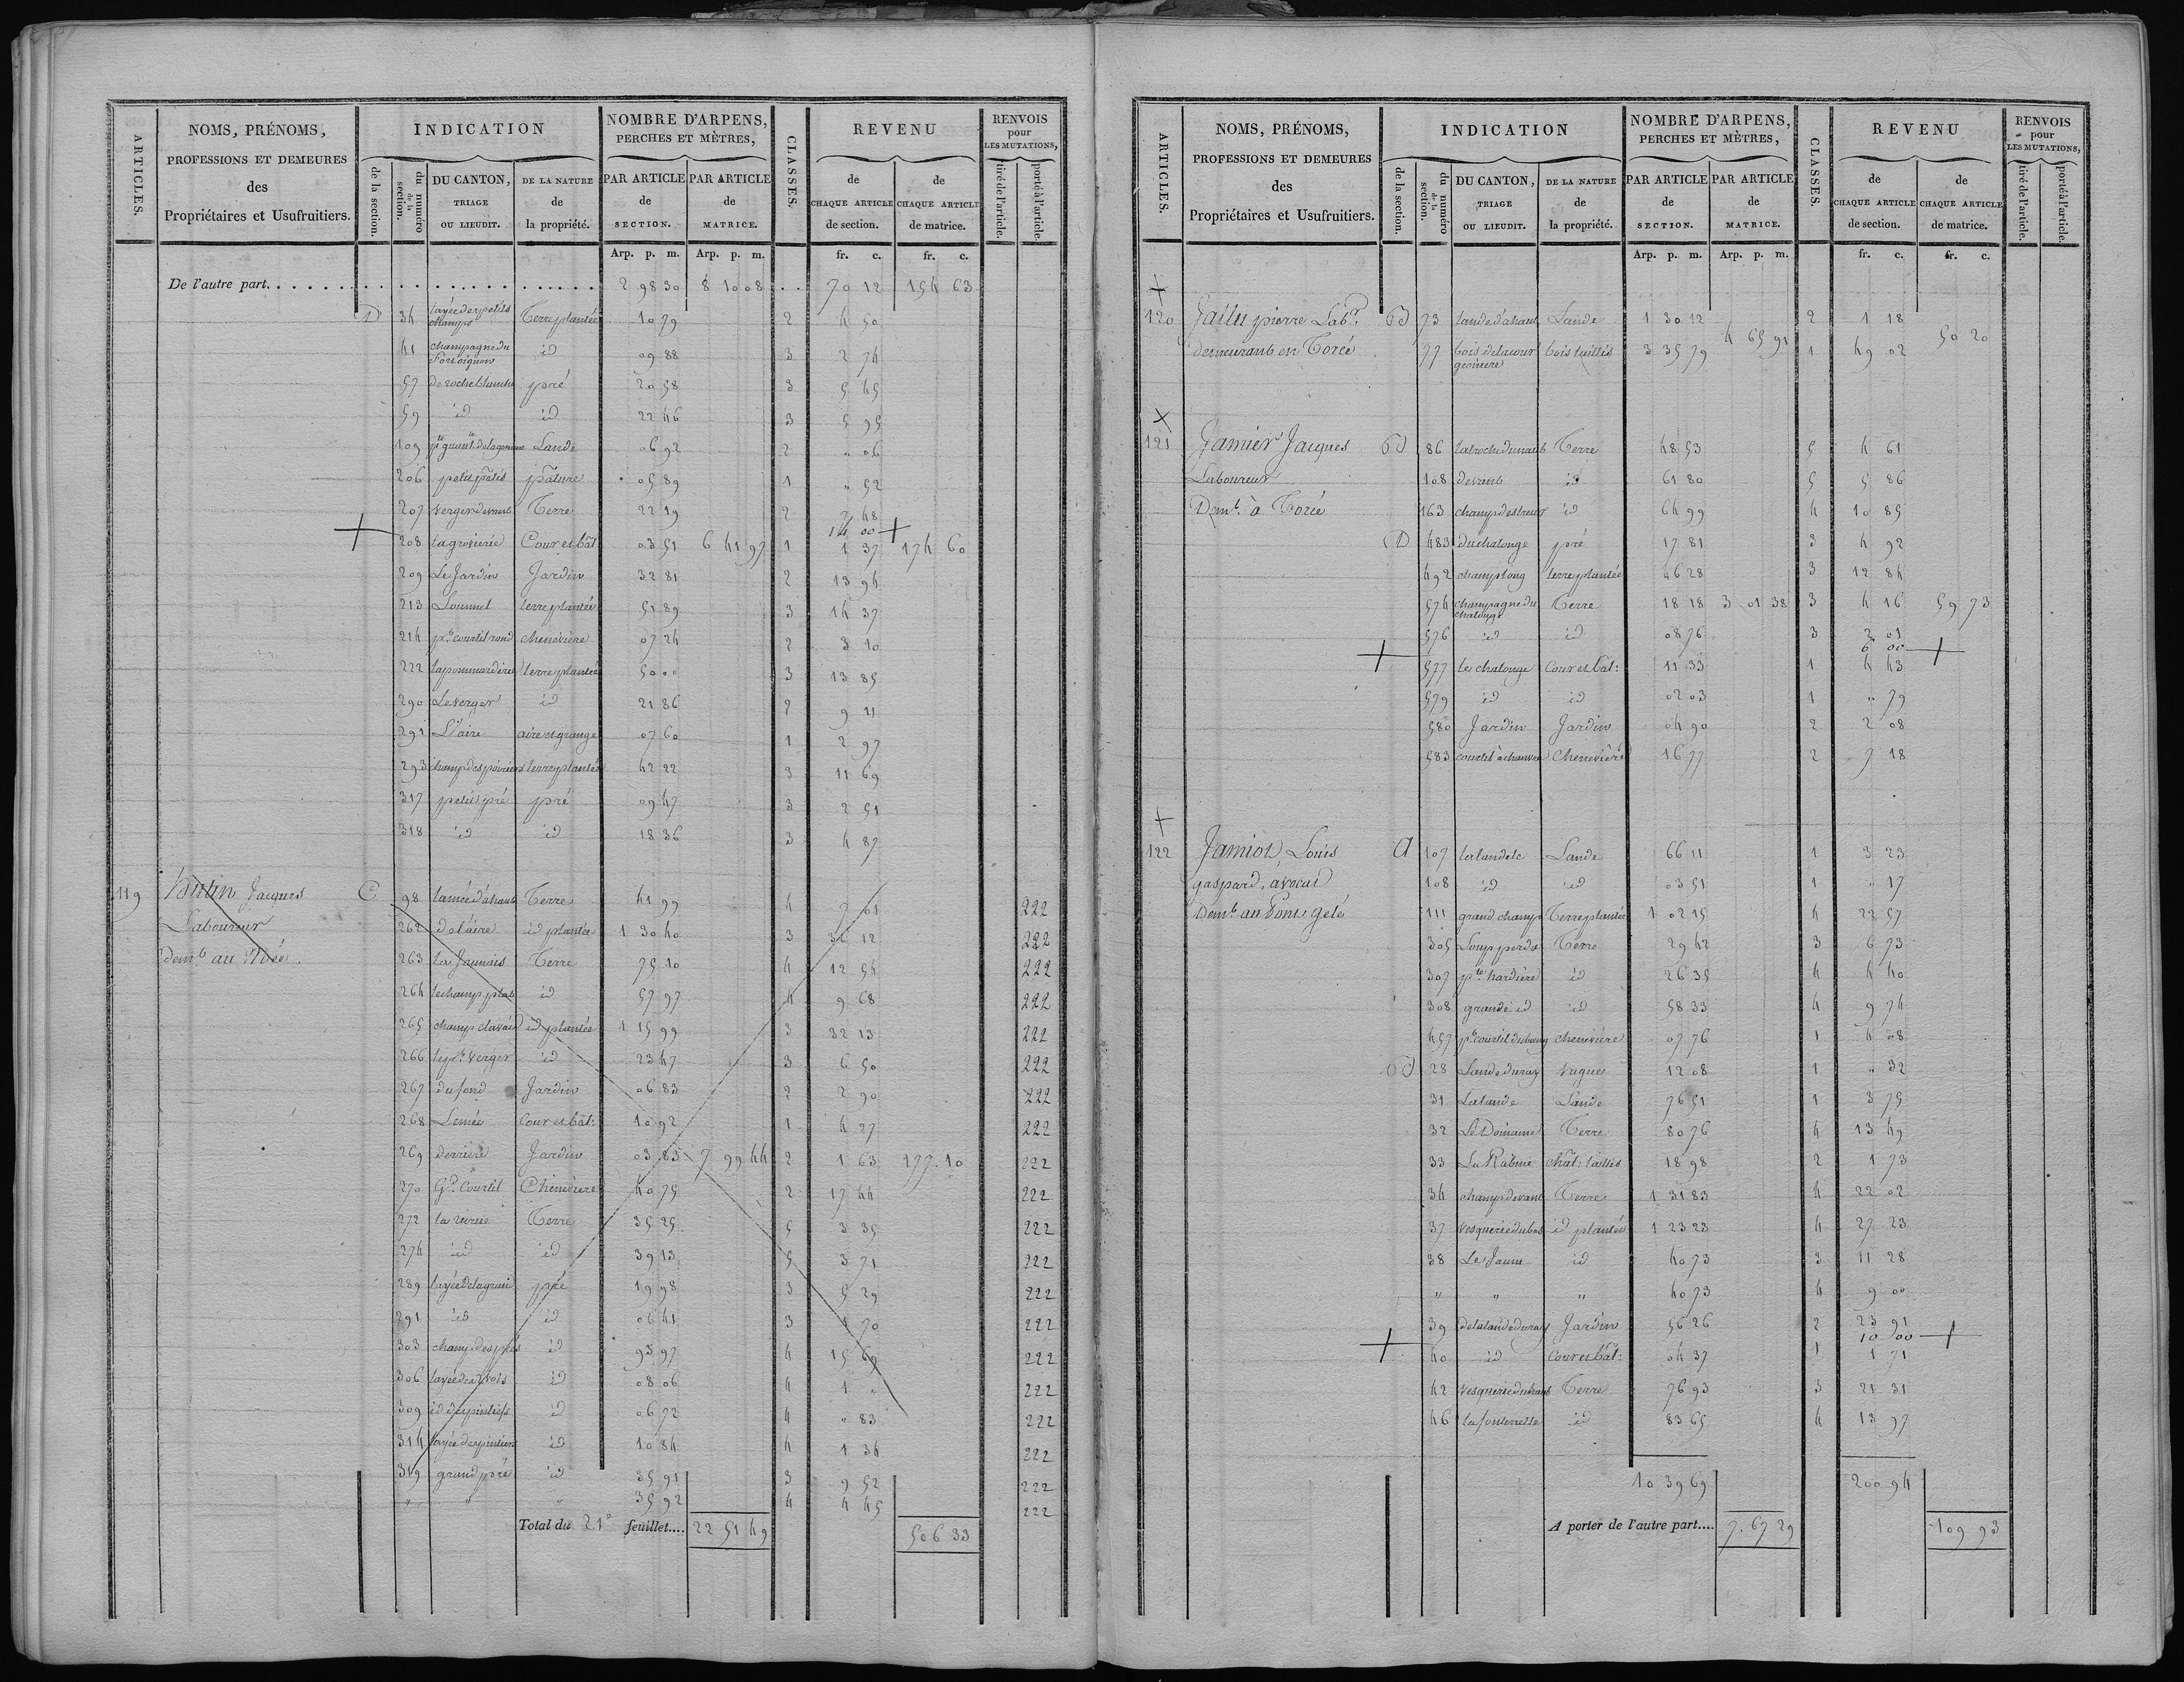 ARTICLES.
NOMS, PRÉNOMS,
PROFESSIONS ET DEMEURES
des
Propriétaires et Usufruitiers.
INDICATION
de la section.
du numéro de la section.
DU CANTON,
TRIAGE
OU LIEUDIT.
DE LA NATURE
de
la propriété.
NOMBRE D'ARPENS,
PERCHES ET MÈTRES,
PAR ARTICLE
de
SECTION.
PAR ARTICLE
de
MATRICE.
CLASSES.
REVENU
de
CHAQUE ARTICLE
de section.
de
CHAQUE ARTICLE
de matrice.
RENVOIS
pour
LES MUTATIONS,
tiré de l'article.
porté à l'article.
Arp. p. m. Arp. p. m. fr. c. fr. c.
De l'autre part. 2 98 30 8 10 08 70 12 154 63
D 34 layée des petits champs Terre plantée 10 79 2 4 50
41 champagne du id 09 88 3 2 74
57 de roche blanche pré 20 58 3 5 45
59 id id 22 46 3 5 95
109 Lande 06 92 2 " 06
206 petits pâtis pâture 05 89 1 " 52
207 verger devant Terre 22 19 2 2 48
14 00
208 Cour et bât 03 51 6 41 97 1 1 37 174 60
209 Le Jardin Jardin 32 81 2 13 94
213 terre plantée 51 89 3 14 37
214 pt courtil rond chenevière 07 24 2 3 10
222 la pommardière terre plantée 50 00 3 13 85
290 Le verger id 21 86 2 9 21
291 L'aire aire et grange 07 60 1 2 97
293 champ des poiriers terre plantée 42 22 3 11 69
317 petit pré pré 09 47 3 2 51
318 id id 18 36 3 4 87
119 Hutin Jacques C 98 Terre 41 99 4 7 01 222
Laboureur 262 de l'aire id plantée 1 30 40 3 36 12 222
Demt au 263 la Jaunais Terre 75 10 4 12 54 222
264 le champ plat id 57 97 4 9 68 222
265 champ id plantée 1 15 99 3 32 13 222
266 le pt verger id 23 47 3 6 50 222
267 du fond Jardin 06 83 2 2 90 222
268 Cour et bât: 10 92 1 4 27 222
269 derrière Jardin 03 83 7 99 44 2 1 63 177 10 222
270 Gd Courtil Chenevière 40 75 2 17 44 222
272 Terre 35 25 5 3 35 222
274 id id 39 13 5 3 71 222
289 pré 19 98 3 5 29 222
291 id id 06 41 3 1 70 222
303 champ des prés id 93 97 4 15 69 222
306 id 08 06 4 1 " 222
309 id 06 72 4 " 83 222
314 id 10 84 4 1 34 222
319 grand pré id 35 91 3 9 52 222
" " " 35 92 4 4 45 222
Total du 21e feuillet.... 22 51 49 506 33
ARTICLES.
NOMS, PRÉNOMS,
PROFESSIONS ET DEMEURES
des
Propriétaires et Usufruitiers.
INDICATION
de la section.
du numéro de la section.
DU CANTON,
TRIAGE
OU LIEUDIT.
DE LA NATURE
de
la propriété.
NOMBRE D'ARPENS,
PERCHES ET MÈTRES,
PAR ARTICLE
de
SECTION.
PAR ARTICLE
de
MATRICE.
CLASSES.
REVENU
de
CHAQUE ARTICLE
de section.
de
CHAQUE ARTICLE
de matrice.
RENVOIS
pour
LES MUTATIONS,
tiré de l'article.
porté à l'article.
Arp. p. m. Arp. p. m. fr. c. fr. c.
120 pierre Labr B 73 lande d'ahaut Lande 1 30 12 2 1 18
demeurant en Torcé 77 bois de la cour bois taillis 3 35 79 4 65 91 1 49 02 50 20
121 Jamier Jacques B 86 Terre 48 53 5 4 61
Laboureur 108 devant id 61 80 5 5 86
Demt à Torcé 163 id 64 99 4 10 85
D 483 du chalonge pré 17 81 3 4 92
492 champ long terre plantée 46 28 3 12 84
574 champagne du chalonge Terre 18 18 3 01 38 3 4 16 59 73
576 id id 08 76 3 2 01
6 00
577 le chalonge Cour et bât: 11 33 1 4 43
579 id id 02 03 1 " 79
580 Jardin Jardin 04 90 2 2 08
583 courtil à chanvre Chenevière 16 77 2 7 18
122 Jamiot, Louis A 107 la landele Lande 66 11 1 3 23
gaspard, avocat 108 id id 03 51 1 " 17
Demt au Pont gelé 111 grand champ Terre plantée 1 02 15 4 22 57
305 Loup perdu Terre 29 42 3 6 73
307 pte hardière id 26 35 4 4 40
308 grande id id 58 33 4 9 74
457 pt courtil du bourg chenevière 07 76 1 4 08
B 28 Lande duray vague 12 08 1 " 32
31 La lande Lande 76 51 1 3 75
32 Le Domaine Terre 80 76 4 13 49
33 La Rabine chât: taillis 18 98 2 1 73
34 champ devant Terre 1 31 83 4 22 02
37 vesquerie du bas id plantée 1 23 23 4 27 23
38 Le Jaunu id 40 73 3 11 28
" " " 40 73 4 9 00
39 de la lande duray Jardin 56 26 2 23 91
10 00
40 id Cour et bât: 04 37 1 1 71
42 vesquerie du haut Terre 76 93 3 21 31
46 la fontenelle id 83 65 4 13 97
10 39 69 200 94
A porter de l'autre part.... 7. 67 29 109 93